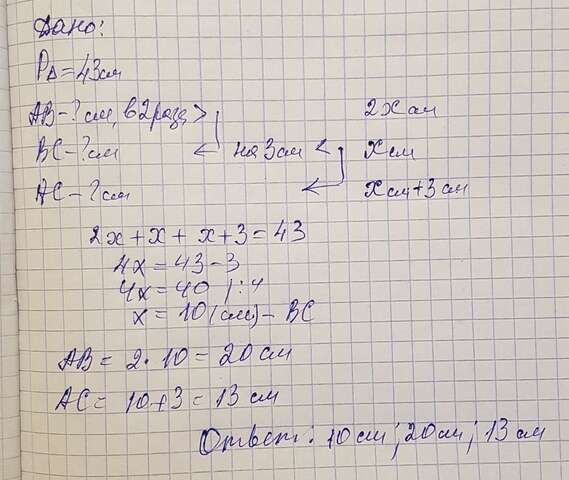 Дано:
P∆ = 43 см
AB - ? см, в 2 раза > 2x см
BC - ? см ← на 3 см < x см
AC - ? см ← x см + 3 см
2x + x + x + 3 = 43
4x = 43 - 3
4x = 40 | : 4
x = 10 (см) - BC
AB = 2 · 10 = 20 см
AC = 10 + 3 = 13 см
Ответ: 10 см; 20 см; 13 см